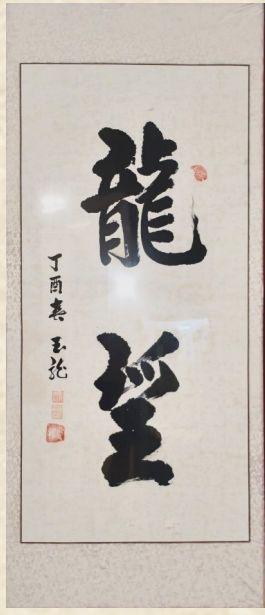 龍望
丁酉春 玉龍